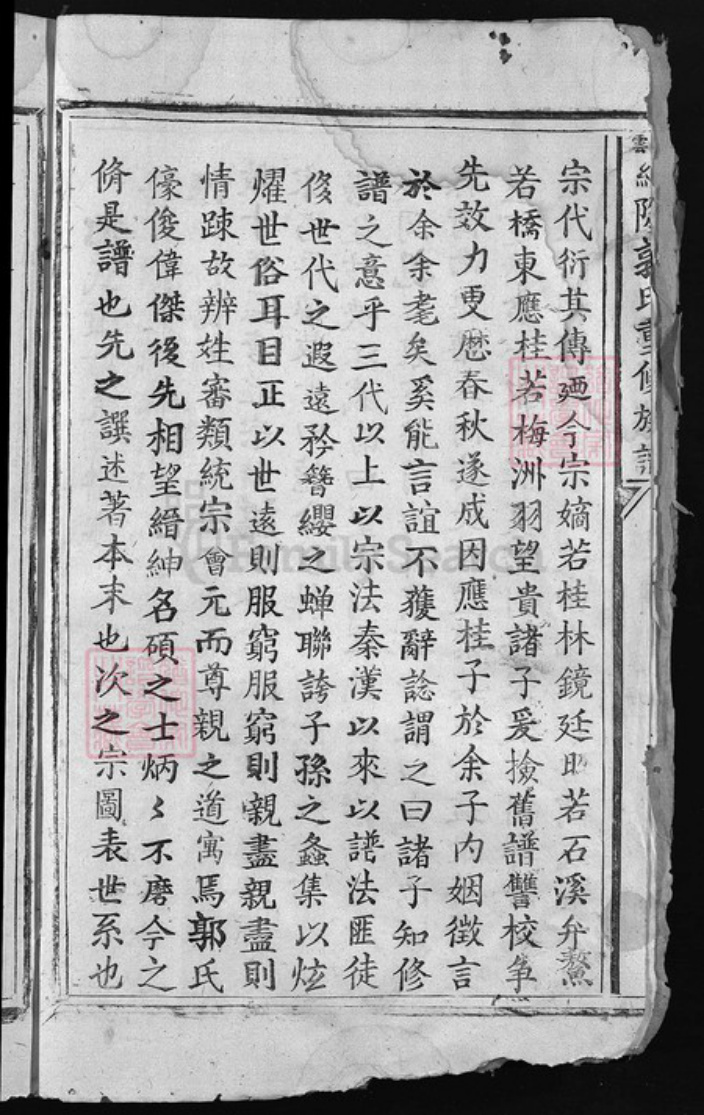 郭氏重修族譜
宗代衍其傳廼今宗嫡若桂林鏡廷昭若石溪弁鰲
若橋東應桂若梅洲羽望貴諸子爰撿舊譜讐校争
先效力更歷春秋遂成因應桂子於余子内姻徵言
於余余耄矣奚能言誼不獲辭諗謂之曰諸子知修
譜之意乎三代以上以宗法秦漢以來以譜法匪徒
侈世代之遐遠矜簪纓之蟬聯誇子孫之螽集以炫
燿世俗耳目正以世遠則服窮服窮則親盡親盡則
情踈故辨姓審類統宗會元而尊親之道寓焉郭氏
儫俊偉傑後先相望縉紳名碩之士炳〻不磨今之
脩是譜也先之譔述著本末也次之宗圖表世系也
FamilySearch